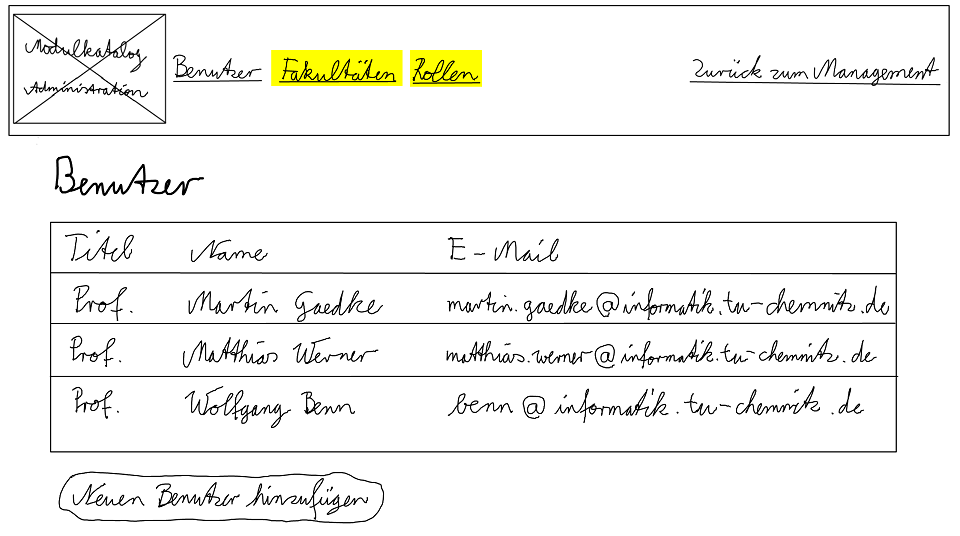 Modulkatalog
Administration
Benutzer Fakultäten Rollen Zurück zum Management
Benutzer
Titel Name E-Mail
Prof. Martin Gaedke martin.gaedke@informatik.tu-chemnitz.de
Prof. Matthias Werner matthias.werner@informatik.tu-chemnitz.de
Prof. Wolfgang Benn benn@informatik.tu-chemnitz.de
Neuen Benutzer hinzufügen